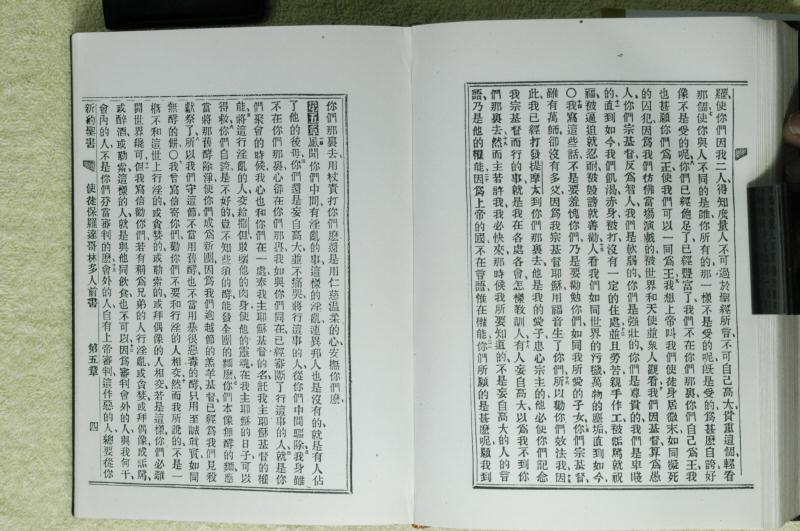 羅使你們因我二人得知度量人不可過於聖經所言不可自己高大貴重這個輕看
那個使你與人不同的是誰你所有的那一樣不是受的呢旣是受的爲甚麽自誇好
像不是受的呢你們已經飽足了已經豐富了我們不在你們那裏你們自己爲王我
也甚願你們爲王使我們可以一同爲王我想上帝叫我們使徒身居微末如同擬死
的囚犯因爲我們彷彿當場演戲的被世界和天使並衆人觀看我們因基督算爲愚
人你們宗基督反爲智人我們是軟弱的你們是強壯的你們是尊貴的我們是卑賤
的直到如今我們飢渴赤身被打沒有一定的住處並且勞苦親手作工被詬罵就祝
福被逼迫就忍耐被毀謗就善勸人看我們如同世界的污穢萬物的塵垢直到如今
〇我寫這些話不是要羞愧你們乃是要勸勉你們如同我所愛的子女你們宗基督
雖有萬師卻沒有多父因爲我宗基督耶穌用福音生了你們所以勸你們效法我因
此我已經打發提摩太到你們那裏去他是我的愛子忠心宗主的他必使你們記念
我宗基督而行的事就是我在各處各會怎樣敎訓人有人妄自高大以爲我不到你
們那裏去然而主若許我我必快來那時候我所要知道的不是妄自高大的人的言
語乃是他的權能因爲上帝的國不在言語惟在權能你們所願的是甚麽呢願我到
你們那裏去用杖責打你們麽還是用仁慈溫柔的心安撫你們麽
第五章風聞你們中間有淫亂的事這樣的淫亂連異邦人也是沒有的就是有人佔
了他的後母你們還是妄自高大並不痛哭將行這事的人從你們中間驅除我身雖
不在你們那裏心卻在你們那裏與我如與你們同在已經審斷了行這事的人就是你
們聚會的時候我心也和你們在一處奉我主耶穌基督的名託我主耶穌基督的權
能將這行淫亂的人交給撒但敗壞他的肉身使他的靈魂在我主耶穌的日子可以
得救你們自誇是不好的豈不知些須的酵能發全團的麵麽你們本像無酵的麵應
當將那舊酵除淨使你們成爲新團因爲我們逾越節的羔羊基督已經爲我們見殺
獻祭了所以我們守這節不當用舊酵也不當用暴很惡毒的酵只用至誠眞實如同
無酵的餅〇我曾寫信寄你們勸你們不要和行淫的人相交然而我所說的不是一
槪不和這世上行淫的或貪婪的或勒索的或拜偶像的人相交若是這樣你們必離
開世界纔可但我寫信勸你們若有稱爲兄弟的人行淫亂或貪婪或拜偶像或詬罵
或醉酒或勒索這樣的人就是與他同飲食也不可以因爲審判會外的人與我何干
會內的人不是你們分當審判的麽會外的人自有上帝審判這作惡的人總要從你
新約聖書 使徒保羅達哥林多人前書 第五章 四